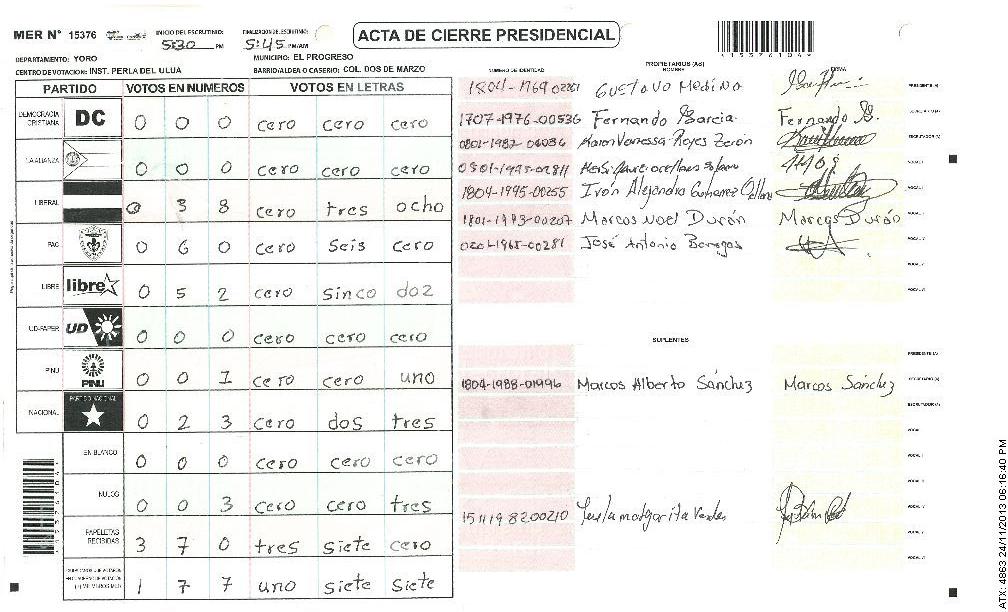 MER N° 15376 INICIO DEL ESCRUTINIO: 5:30 PM FINALIZACION DE ESCRUTINIO: 5:45 PM/AM
ACTA DE CIERRE PRESIDENCIAL
DEPARTAMENTO: YORO MUNICIPIO: EL PROGRESO
CENTRO DE VOTACION: INST. PERLA DEL ULUA BARRIO/ALDEA O CASERIO: COL. DOS DE MARZO
PARTIDO VOTOS EN NUMEROS VOTOS EN LETRAS
DEMOCRACIA CRISTIANA DC 0 0 0 cero cero cero
LA ALIANZA 0 0 0 cero cero cero
LIBERAL 0 3 8 cero tres ocho
PAC 0 6 0 cero Seis cero
LIBRE libre 0 5 2 cero sinco doz
UD-FAPER UD 0 0 0 cero cero cero
PINU PINU 0 0 1 cero cero uno
NACIONAL PARTIDO NACIONAL 0 2 3 cero dos tres
EN BLANCO 0 0 0 cero cero cero
NULOS 0 0 3 cero cero tres
PAPELETAS RECIBIDAS 3 7 0 tres siete cero
1 7 7 uno siete Siete
NUMERO DE IDENTIDAD PROPIETARIOS (AS) NOMBRE FIRMA
GUSTAVO Medina PRESIDENTE (A)
1707-1976-00536 Fernando Garcia Fernando G. SECRETARIO (A)
0801-1982-04036 Karen Vanessa Reyes Zerón ESCRUTADOR (A)
VOCAL I
1804-1995-00255 Iván Alejandro Gutierrez VOCAL II
Marcos Noel Durón Marcos Durón
José Antonio Banegas
SUPLENTES
PRESIDENTE (A)
1804-1988-01996 Marcos Alberto Sánchez Marcos Sánchez SECRETARIO (A)
ESCRUTADOR (A)
1511198200210
ATX: 4863 24/11/2013 06:16:40 PM